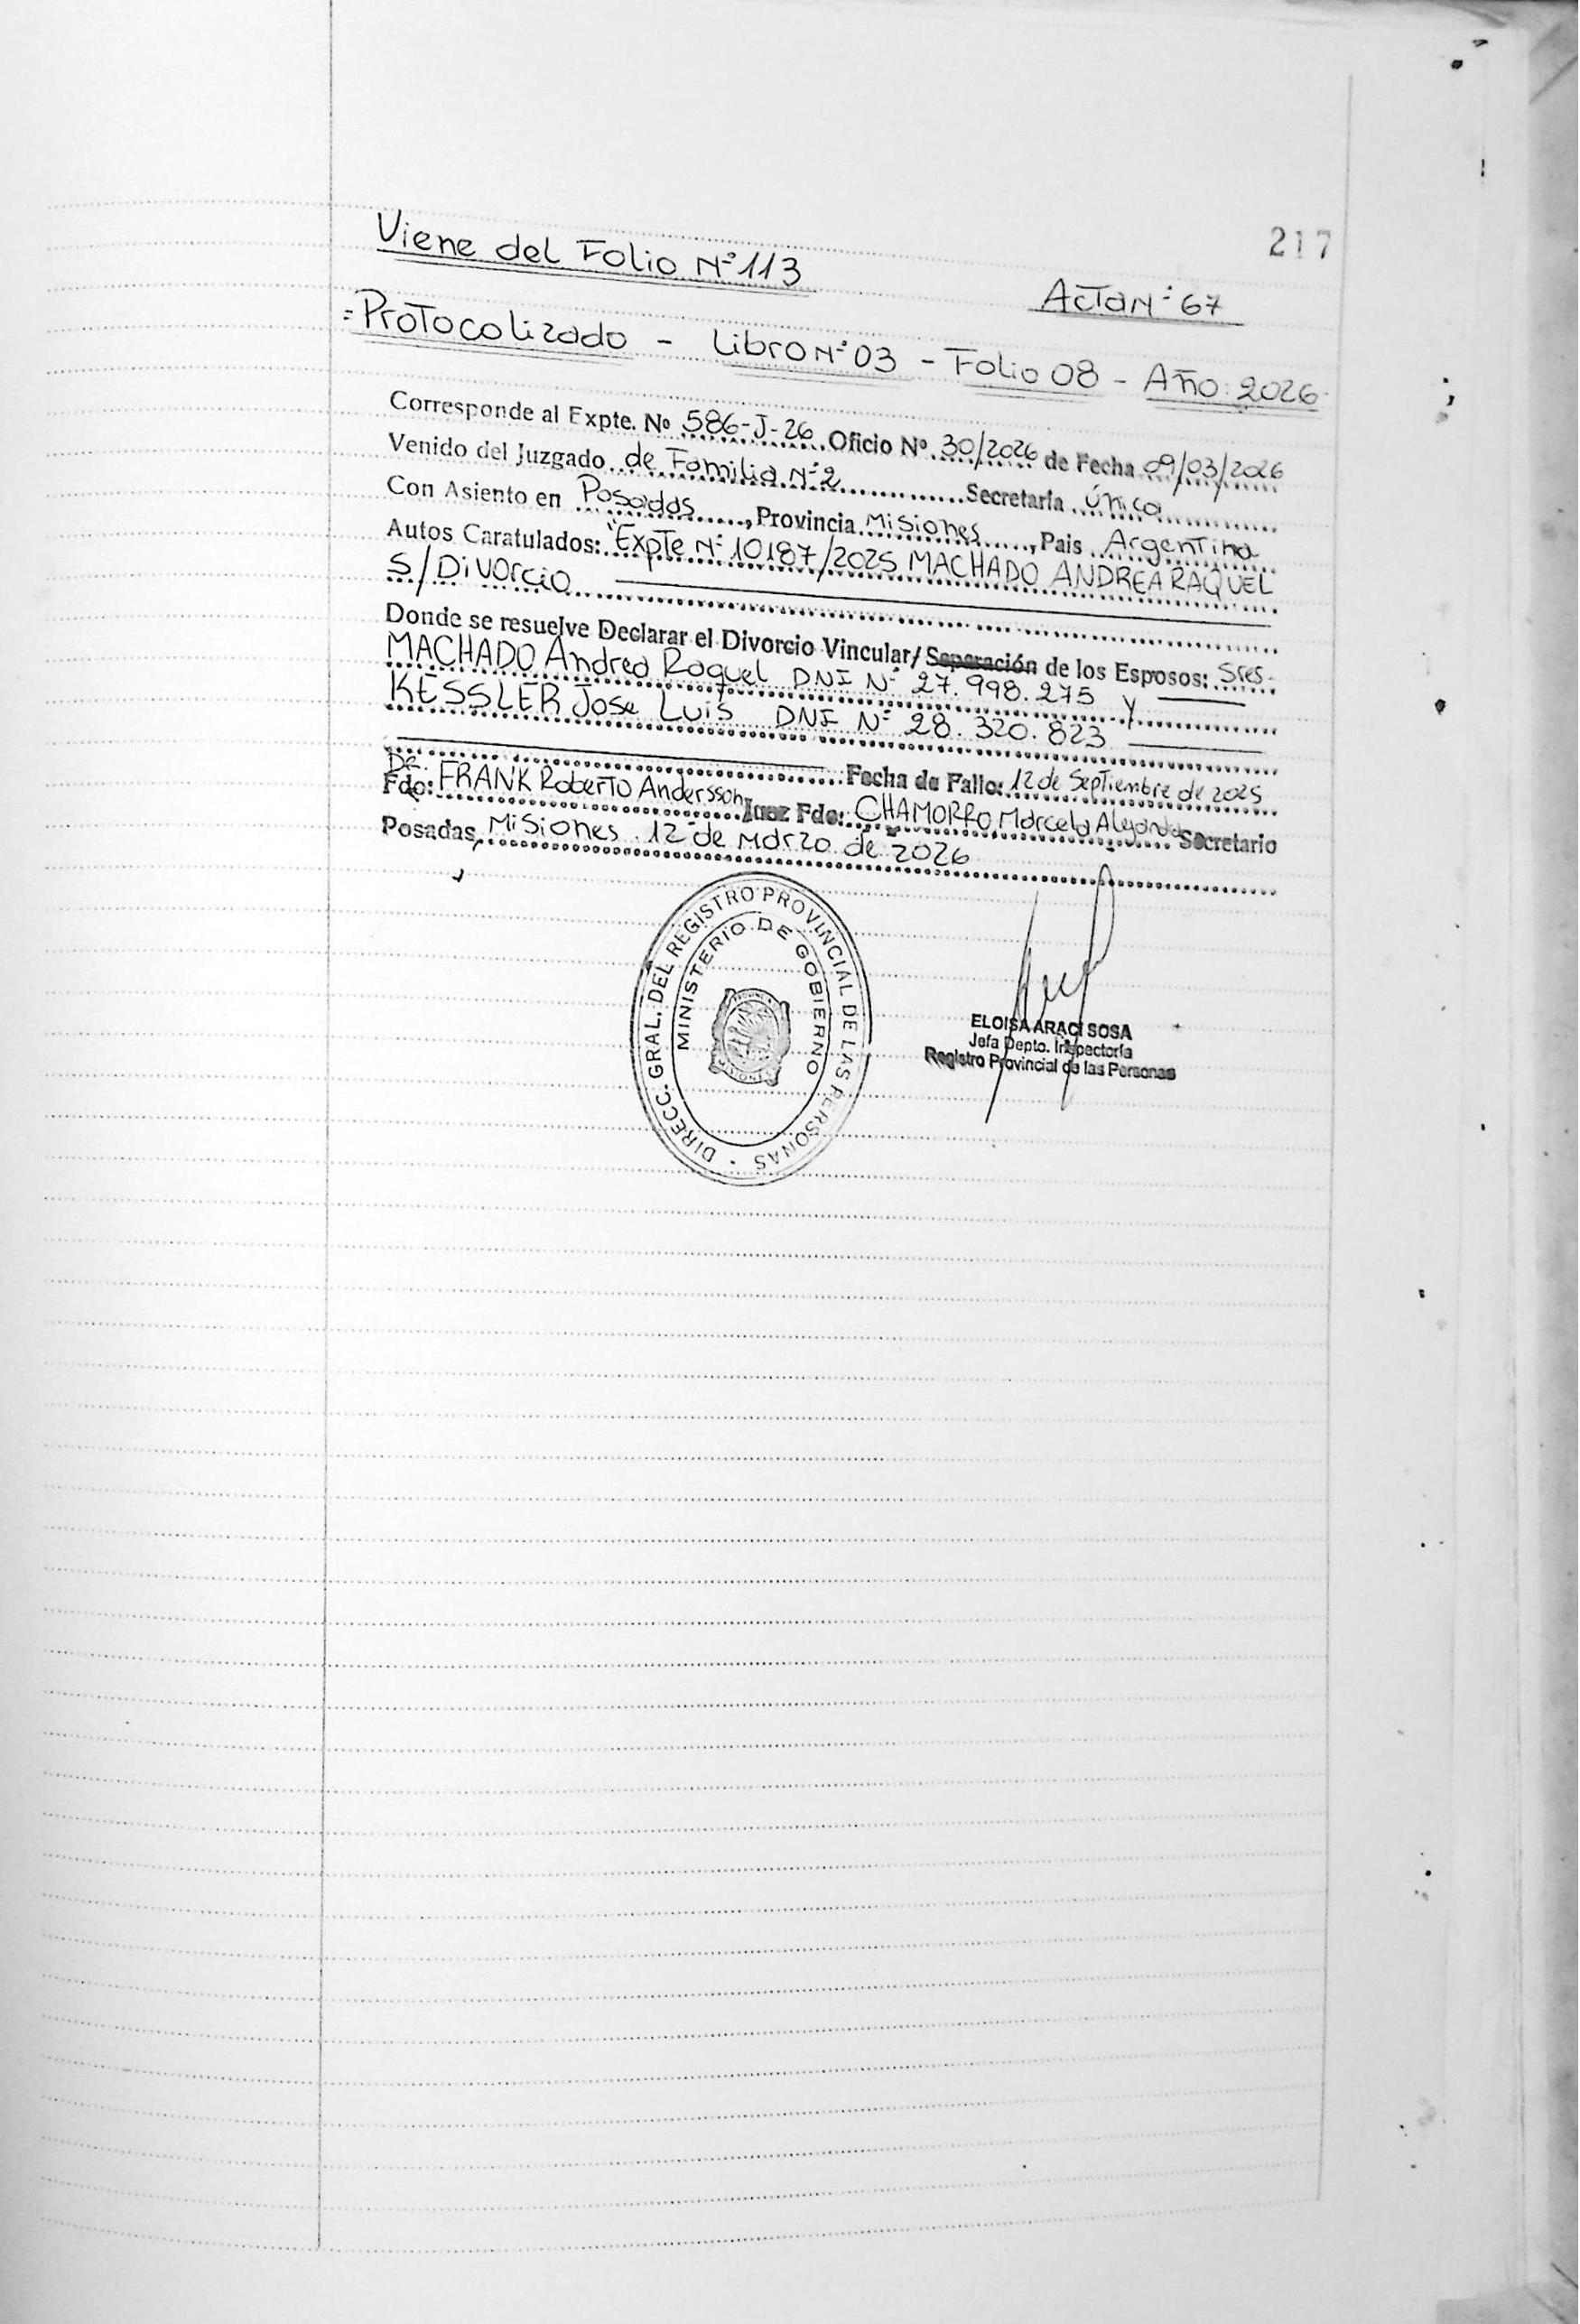 217
Viene del Folio N° 113
Acta N° 67
=Protocolizado - Libro N° 03 - Folio 08 - Año: 2026
Corresponde al Expte. Nº 586-J-26 Oficio Nº 30/2026 de Fecha 09/03/2026
Venido del Juzgado de Familia N° 2 Secretaría Única
Con Asiento en Posadas, Provincia Misiones, Pais Argentina
Autos Caratulados: "Expte N° 10187/2025 MACHADO ANDREA RAQUEL
S/Divorcio
Donde se resuelve Declarar el Divorcio Vincular/Separación de los Esposos: Sres.
MACHADO Andrea Raquel DNI N° 27.998.275 y
KESSLER Jose Luis DNI N° 28.320.823
Fecha de Fallo: 12 de Septiembre de 2025
Dr.
Fdo: FRANK Roberto Andersson Juez Fdo: CHAMORRO Marcela Alejandra Secretario
Posadas, Misiones. 12 de Marzo de 2026
DIRECC. GRAL. DEL REGISTRO PROVINCIAL DE LAS PERSONAS
MINISTERIO DE GOBIERNO
ELOISA ARACI SOSA
Jefa Depto. Inspectoría
Registro Provincial de las Personas